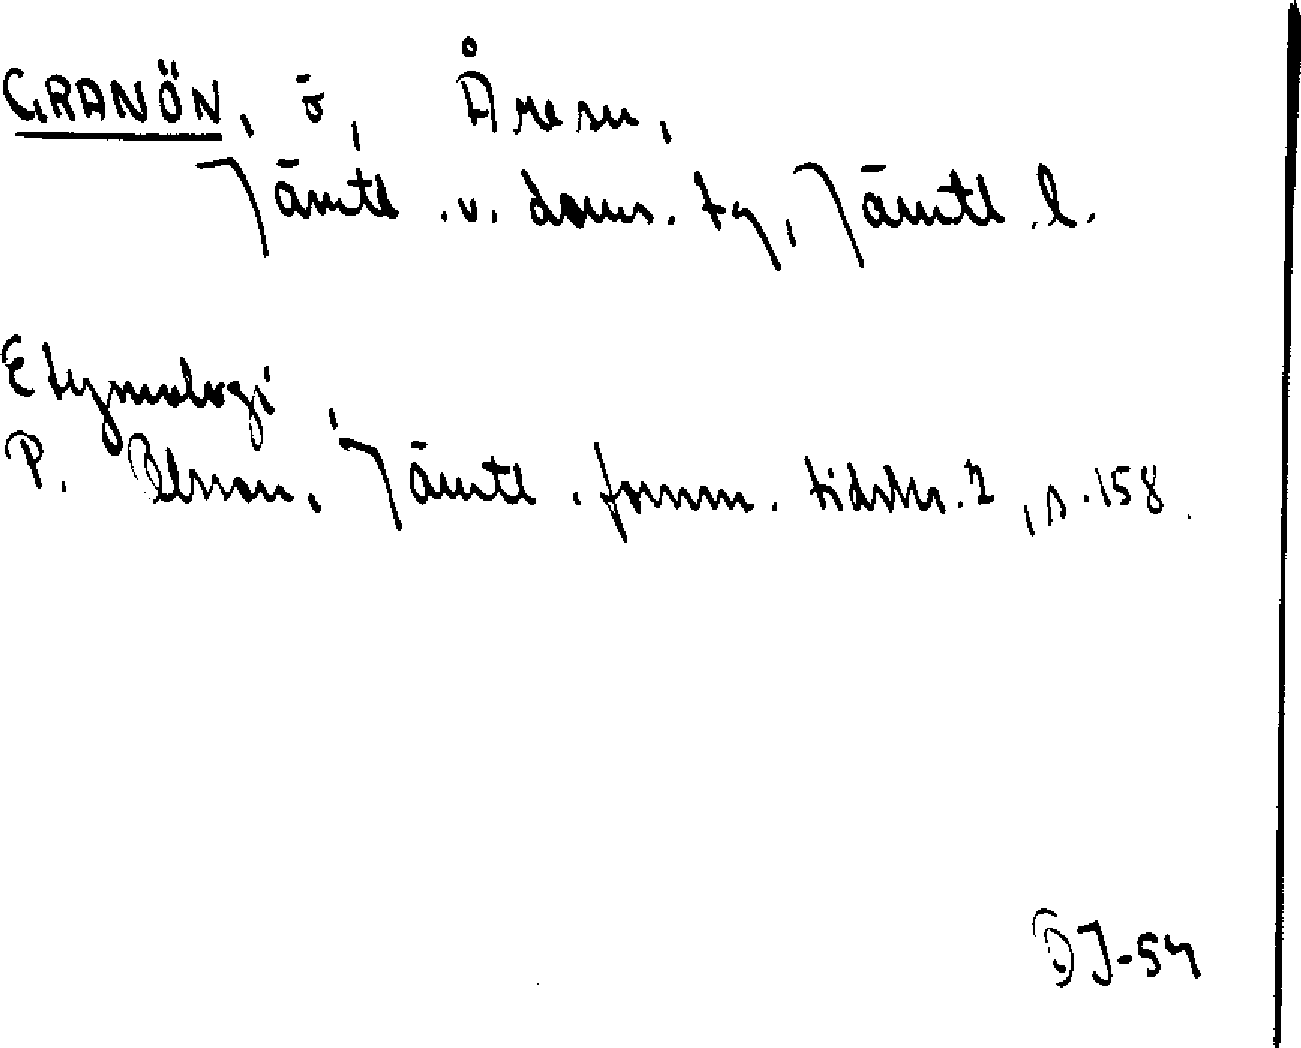 GRANÖN, ö, Åre sn,
Jämtl. v. doms. tg, Jämtl. l.
Etymologi
P. Olsson, Jämtl. fornm. tidskr. 2, s. 158.
DJ-54